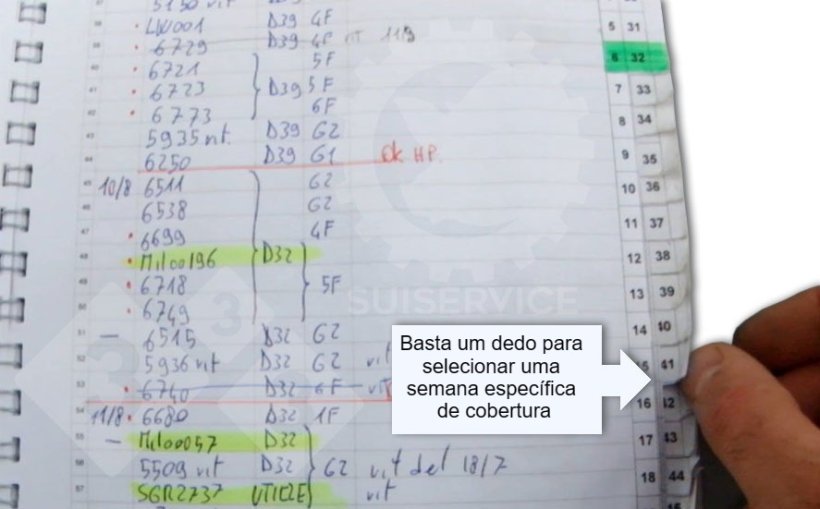 5150 vit D39
LW001 D39 4F
6729 D39 4F vit 11/9
6721 5F
6723 D39 5F
6773 6F
5935 vit. D39 G2
6250 D39 G1 Ok HP.
10/8 6511 G2
6538 G2
6699 4F
Mil00196 D32
6718 5F
6749
6515 D32 G2
5936 vit D32 G2 vit
6740 D32 6F
11/8 6680 D32 1F
Mil00057 D32
5509 vit D32 G2 vit del 18/7
SGR2737 vit
5 31
6 32
7 33
8 34
9 35
10 36
11 37
12 38
13 39
14 40
41
16 42
17 43
18 44
333
SUISERVICE
Basta um dedo para
selecionar uma
semana específica
de cobertura